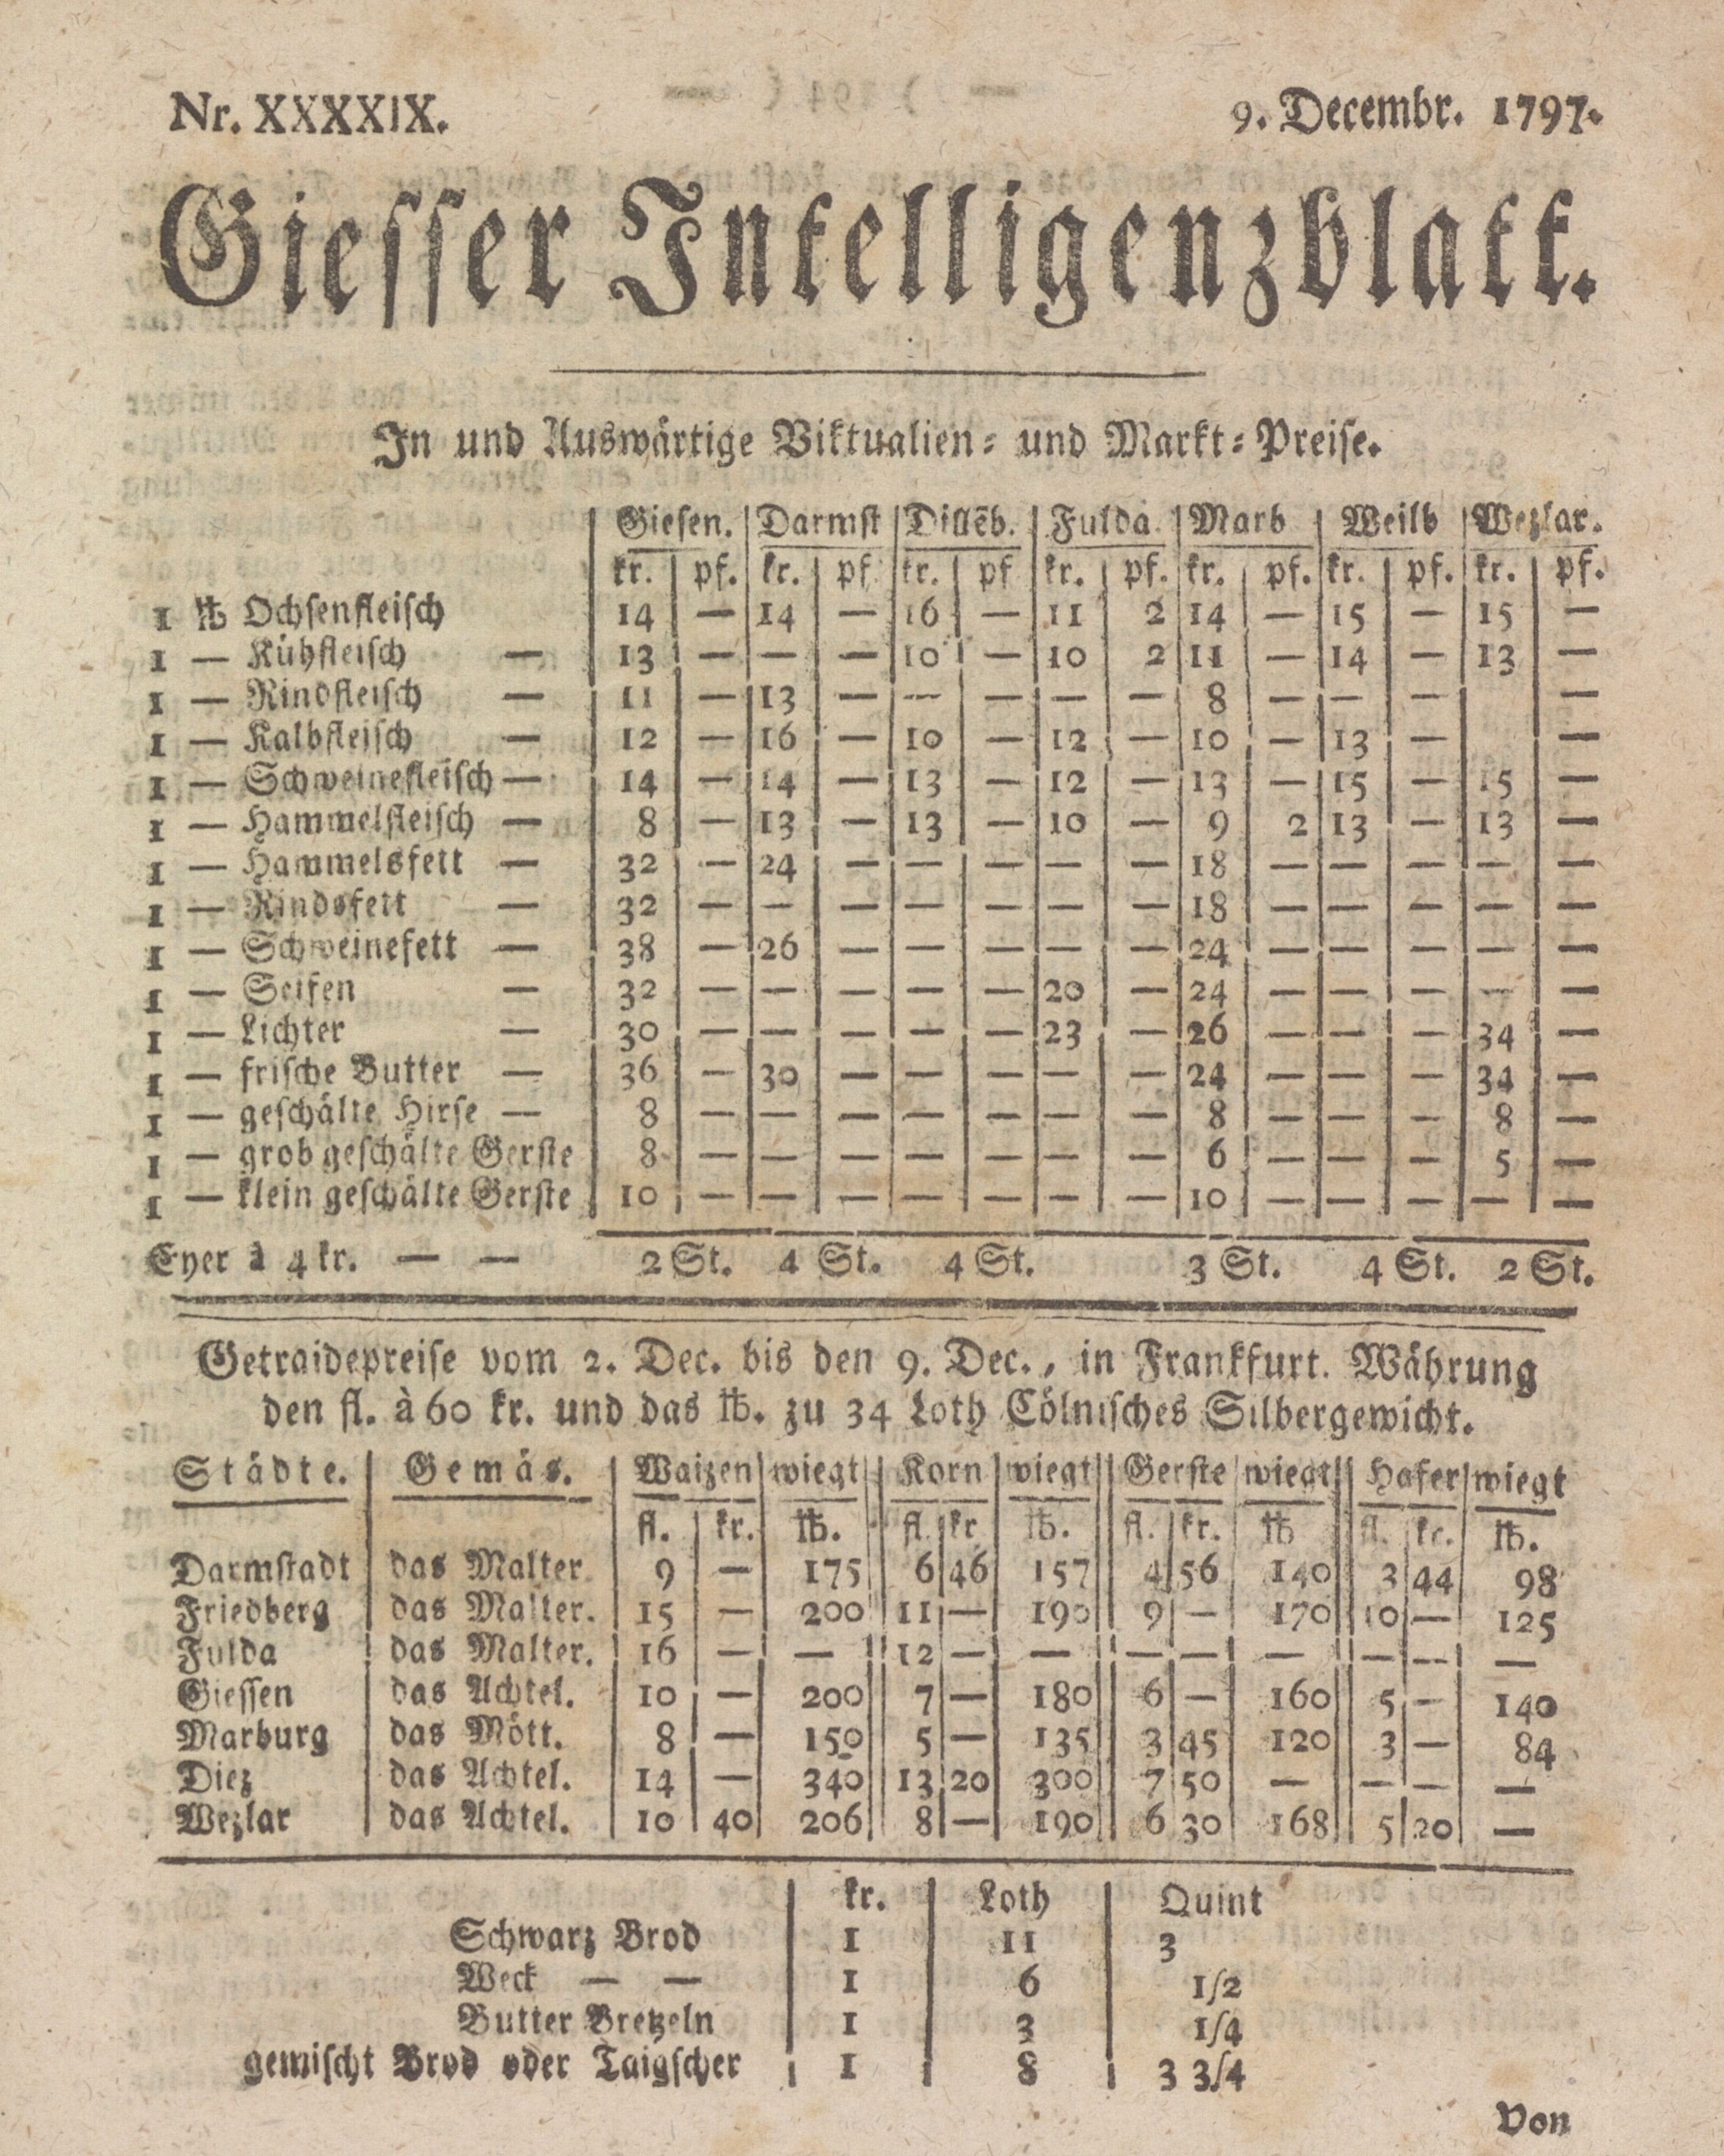 Nr. XXXXIX. 9. Decembr. 1797.
Giesser Intelligenzblatt.
In und Auswärtige Viktualien- und Markt-Preise.
Giesen. Darmst Dillēb. Fulda Marb Weilb Wezlar.
kr. pf. kr. pf kr. pf kr. pf. kr. pf. kr. pf. kr. pf.
1 ℔ Ochsenfleisch 14 — 14 — 16 — 11 2 14 — 15 — 15 —
1 — Kühfleisch — 13 — — — 10 — 10 2 11 — 14 — 13 —
1 — Rindfleisch — 11 — 13 — — — — — 8 — — — —
1 — Kalbfleisch — 12 — 16 — 10 — 12 — 10 — 13 — —
1 — Schweinefleisch — 14 — 14 — 13 — 12 — 13 — 15 — 15 —
1 — Hammelfleisch — 8 — 13 — 13 — 10 — 9 2 13 — 13 —
1 — Hammelsfett — 32 — 24 — — — — — 18 — — — — —
1 — Rindsfett — 32 — — — — — — — 18 — — — — —
1 — Schweinefett — 38 — 26 — — — — — 24 — — — — —
1 — Seifen — 32 — — — — — 20 — 24 — — — — —
1 — Lichter — 30 — — — — — 23 — 26 — — — 34 —
1 — frische Butter — 36 — 30 — — — — — 24 — — — 34 —
1 — geschälte Hirse — 8 — — — — — — — 8 — — — 8 —
1 — grob geschälte Gerste 8 — — — — — — — 6 — — — 5 —
1 — klein geschälte Gerste 10 — — — — — — — 10 — — — — —
Eyer à 4 kr. — — 2 St. 4 St. 4 St. 3 St. 4 St. 2 St.
Getraidepreise vom 2. Dec. bis den 9. Dec., in Frankfurt. Währung
den fl. à 60 kr. und das ℔. zu 34 Loth Cölnisches Silbergewicht.
Städte. Gemäs. Waizen wiegt Korn wiegt Gerste wiegt Hafer wiegt
fl. kr. ℔. fl. kr ℔. fl. kr. ℔ fl. kr. ℔.
Darmstadt das Malter. 9 — 175 6 46 157 4 56 140 3 44 98
Friedberg das Malter. 15 — 200 11 — 190 9 — 170 10 — 125
Fulda das Malter. 16 — — 12 — — — — — — — —
Giessen das Achtel. 10 — 200 7 — 180 6 — 160 5 — 140
Marburg das Mött. 8 — 150 5 — 135 3 45 120 3 — 84
Diez das Achtel. 14 — 340 13 20 300 7 50 — — — —
Wezlar das Achtel. 10 40 206 8 — 190 6 30 168 5 20 —
kr. Loth Quint
Schwarz Brod 1 11 3
Weck — — 1 6 1/2
Butter Bretzeln 1 3 1/4
gemischt Brod oder Taigscher 1 8 3 3/4
Von